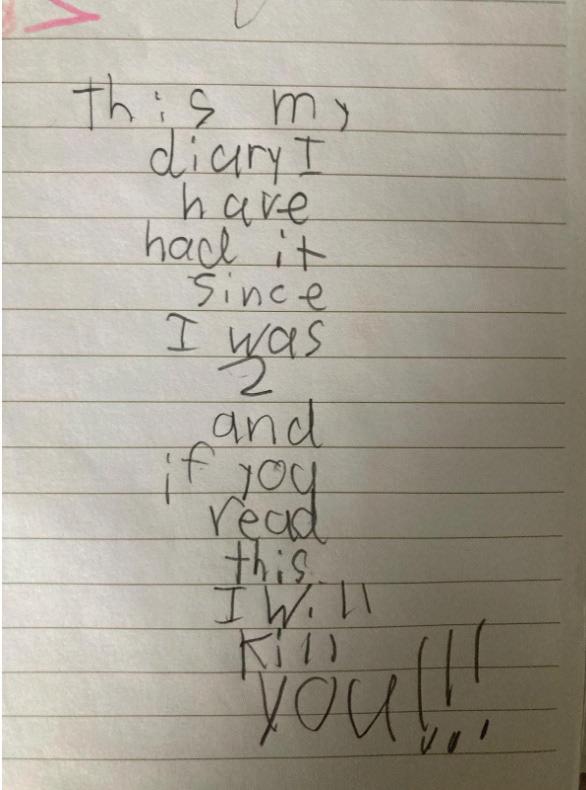 this my
diary I
have
had it
since
I was
2
and
if you
read
this
I will
kill
you!!!